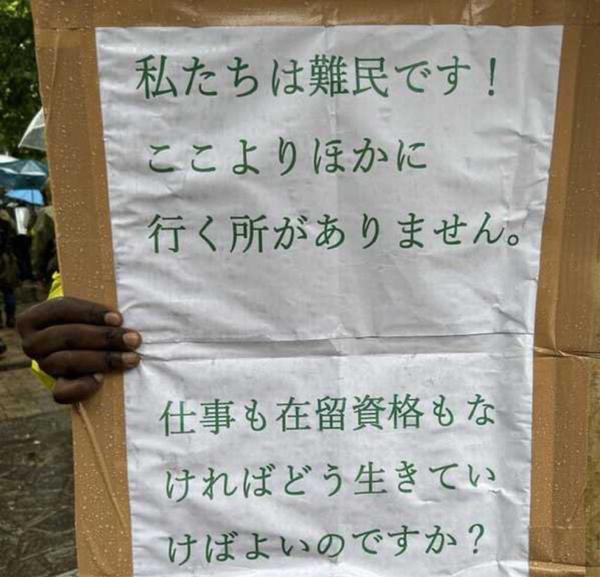 私たちは難民です！
ここよりほかに
行く所がありません。
仕事も在留資格もな
ければどう生きてい
けばよいのですか？